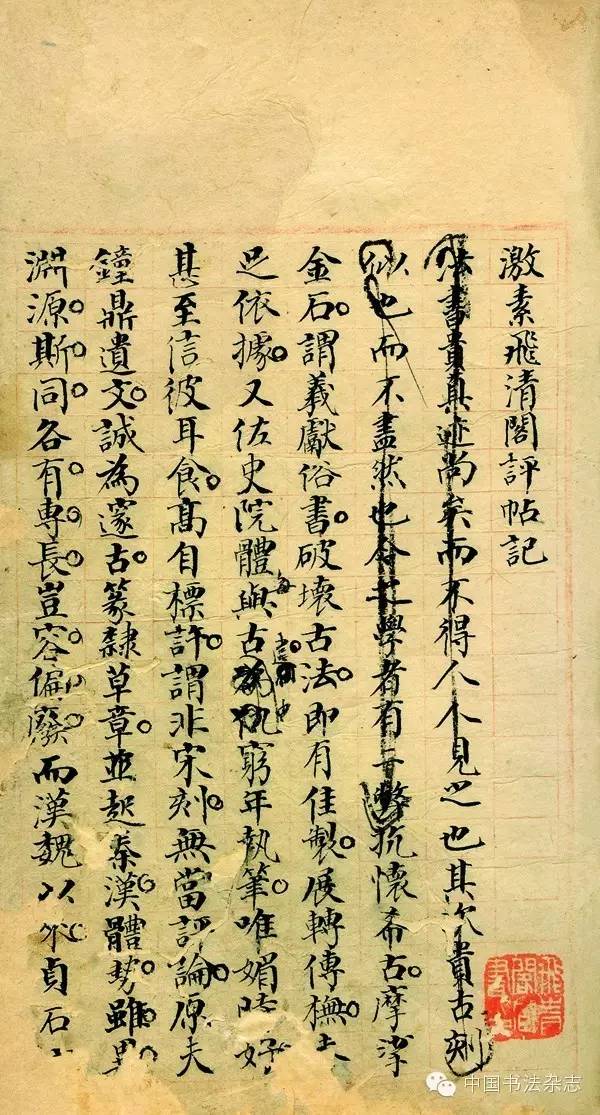 激素飛清閣評帖記
法書貴真迹尚矣而不得人人見之也其次貴古刻
似也而不盡然也今之學者有二弊抗懷希古摩挲
金石謂羲獻俗書破壞古法即有佳製展轉傳橅
足依據又佐史院體與古每違窮年執筆唯媚時好
甚至信彼耳食高自標許謂非宋刻無當評論原夫
鐘鼎遺文誠為邃古篆隸草章並起秦漢體勢雖異
淵源斯同各有專長豈容偏廢而漢魏以來貞石
中国书法杂志